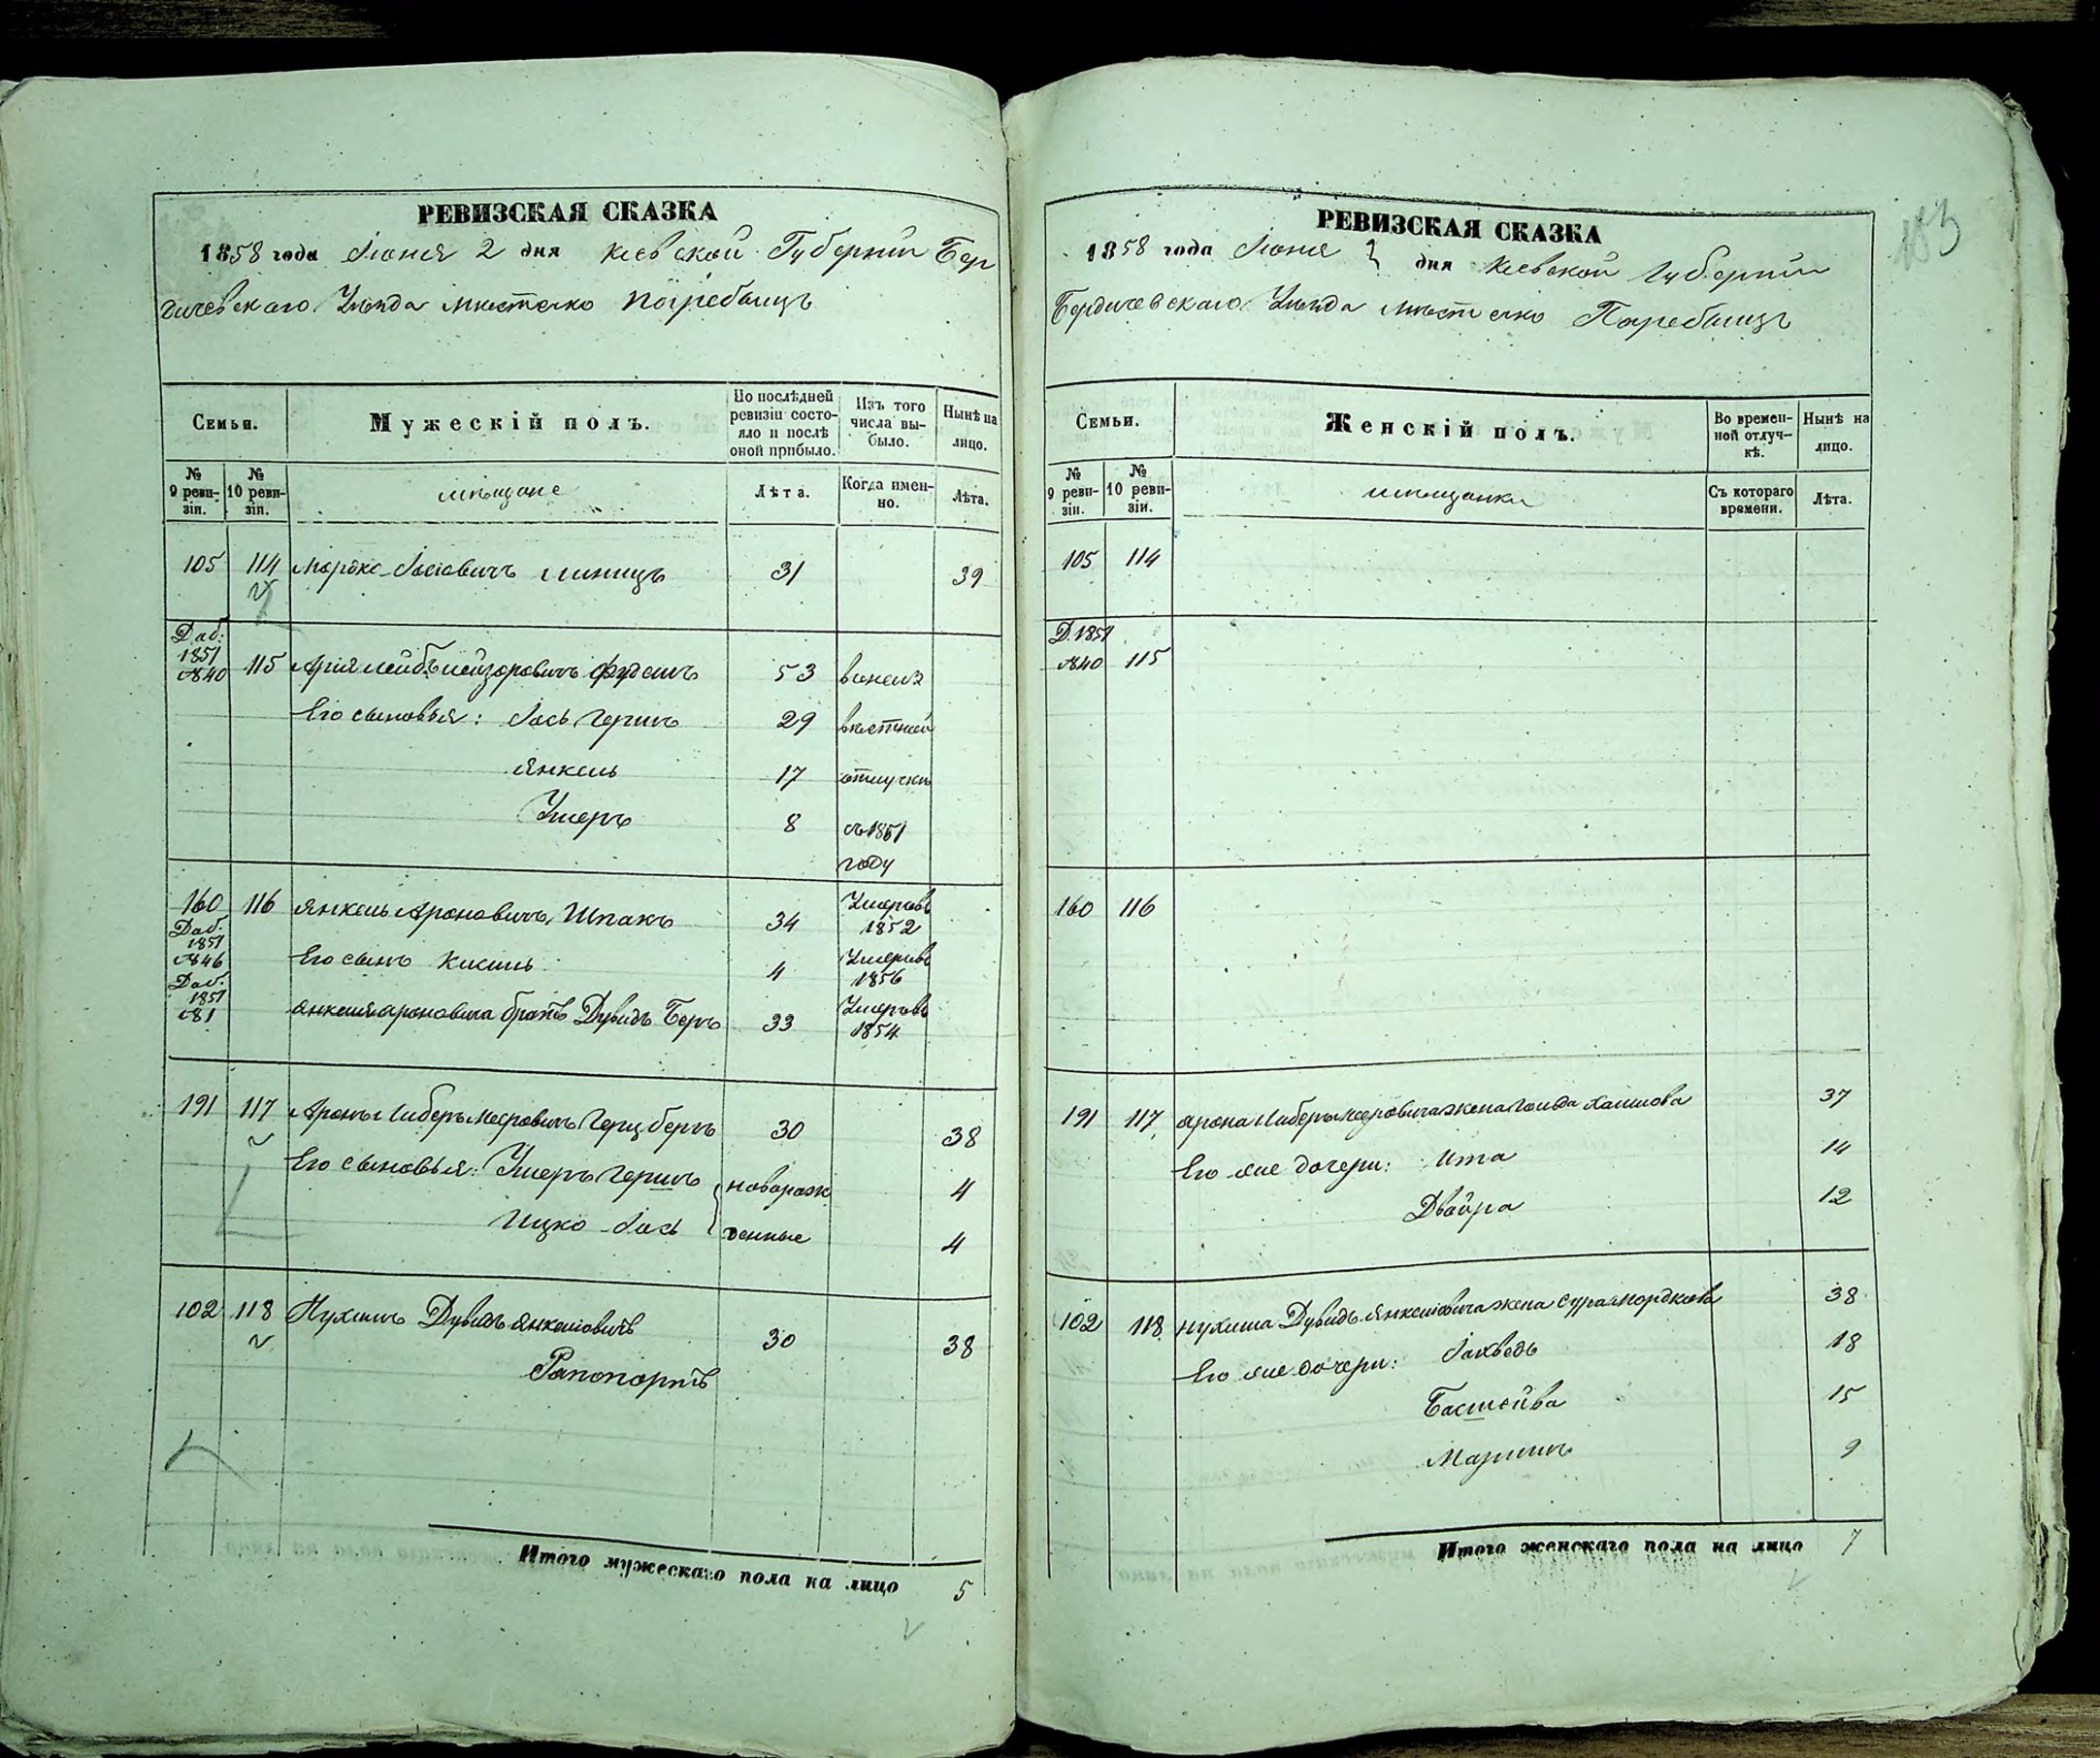 РЕВИЗСКАЯ СКАЗКА
1858 года Июня 2 дня Кіевской Губерніи Бер
дичевскаго Уѣзда мѣстечко Погребыщъ
Семьи.
Мужескій полъ.
По послѣдней ревизіи состо-
яло и послѣ
оной прибыло.
Изъ того
числа вы-
было.
Нынѣ на
лицо.
№
9 реви-
зіи.
№
10 реви-
зіи.
мѣщане
Лѣта.
Когда имен-
но.
Лѣта.
105 114 Мордко Іосіовичъ 31 39
Доб:
1851
№40 115 Арія Лейбъ Лейзоровичъ 53 
Его сыновья: Іось Гершъ 29 
Янкель 17 отлучкѣ
Ушеръ 8 съ 1851
году
160 116 Янкель Ароновичъ Шпакъ 34 Умеръ въ
1852
Доб.
1851
№46 Его сынъ 4 Умеръ въ
1856
Доб.
1851
№81 Янкеля Ароновича братъ Дувидъ Беръ 33 Умеръ въ
1854
191 117 Аронъ Либеръ Меровичъ Герцберъ 30 38
Его сыновья: Ушеръ Гершъ новорож 4
Ицко Іось денные 4
102 118 Нухимъ Дувидъ Янкеліовичъ 30 38
Рапопортъ
Итого мужескаго пола на лицо 5
183
РЕВИЗСКАЯ СКАЗКА
1858 года Июня 2 дня Кіевской Губерніи
Бердичевскаго Уѣзда мѣстечко Погребыщъ
Семьи.
Женскій полъ.
Во времен-
ной отлуч-
кѣ.
Нынѣ на
лицо.
№
9 реви-
зіи.
№
10 реви-
зіи.
мѣщанки
Съ котораго
времени.
Лѣта.
105 114
Д. 1851
№40 115
160 116
191 117 Арона Либера Меровича жена Голда Хаимова 37
Его же дочери: Ита 14
Двойра 12
102 118 Нухима Дувидъ Янкеліовича жена Сура Мордкова 38
Его же дочери: Іохведь 18
Басшейва 15
Марьимъ 9
Итого женскаго пола на лицо 7